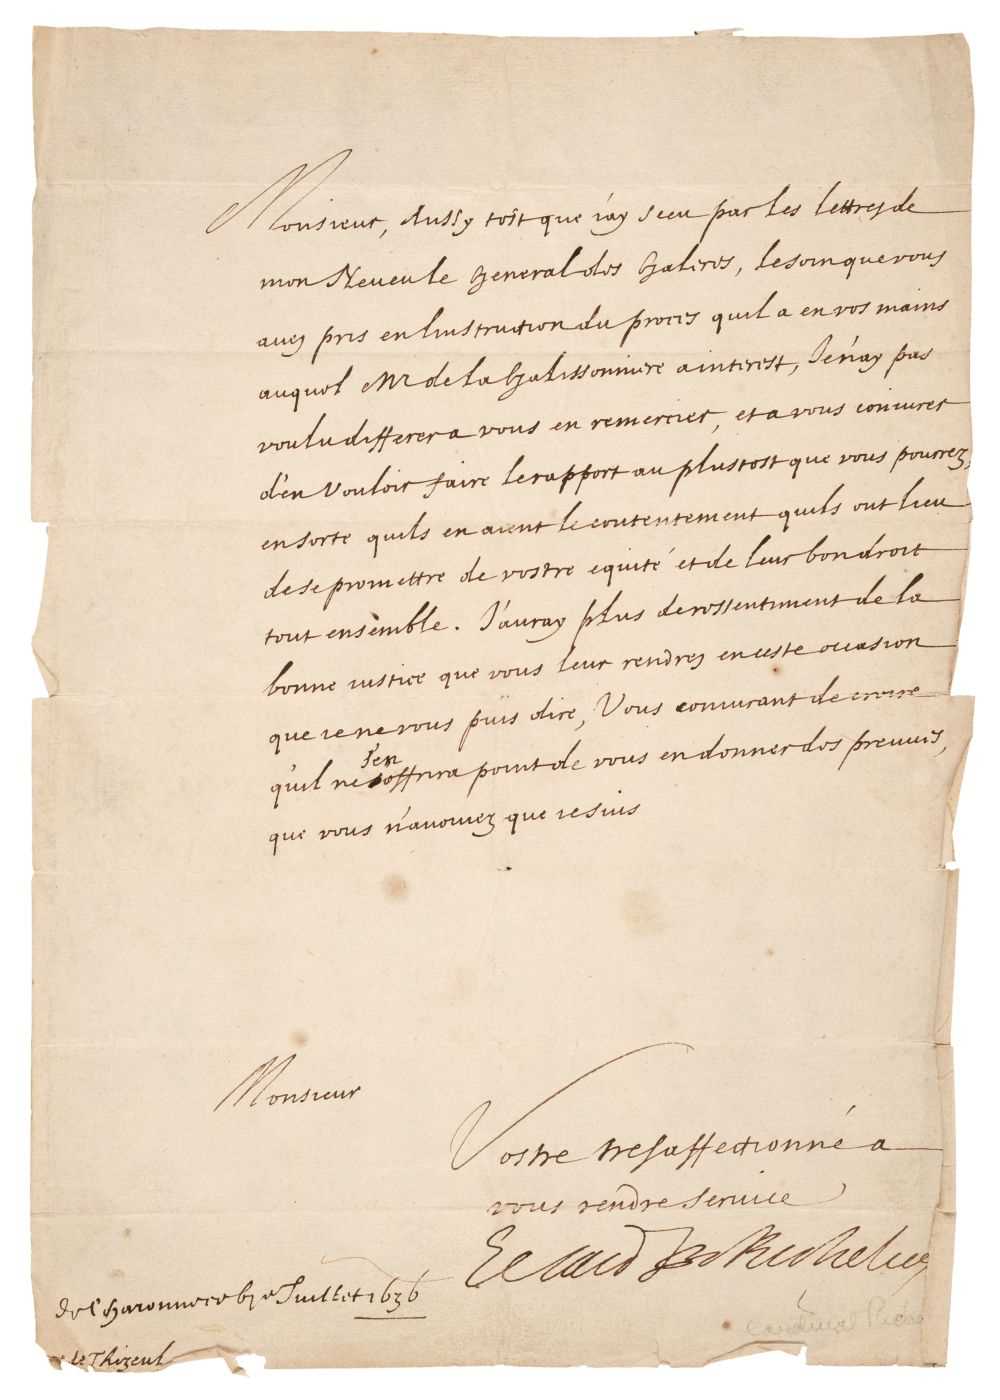 Monsieur, Aussy tost que i'ay sceu par les lettres de
mon Neveu le General des Galeres, le soin que vous
avez pris en l'instruction du proces qu'il a en vos mains
auquel Mr de la Galissonniere a interest, Je n'ay pas
voulu differer a vous en remercier, et a vous coniurer
d'en vouloir faire le rapport au plustost que vous pourrez,
en sorte quils en aient le contentement quils ont lieu
de se promettre de vostre equité et de leur bon droit
tout ensemble. J'auray plus de ressentiment de la
bonne iustice que vous leur rendrez en ceste occasion
que ie ne vous puis dire, Vous coniurant de croire
s'en
qu'il ne offrira point de vous en donner des preuves,
que vous n'avouiez que ie suis
Monsieur
Vostre tres affectionné a
vous rendre service
Le Card de Richelieu
de Charonne ce Juillet 1636
le Thizeul
Cardinal Riche